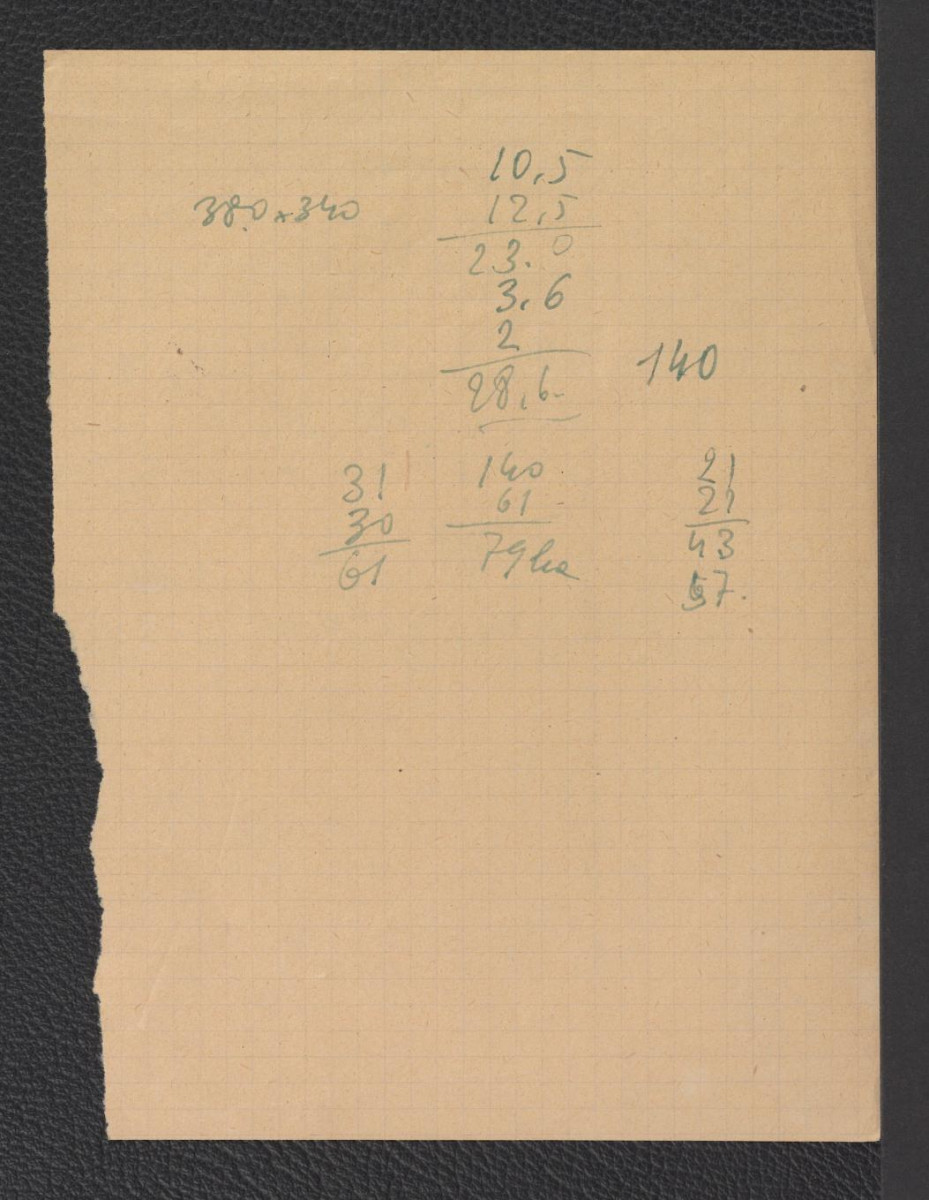 10,5
380 x 340
12,5
23.0
3,6
2
28,6
140
31
30
61
140
61
79 ha
21
21
43
57.